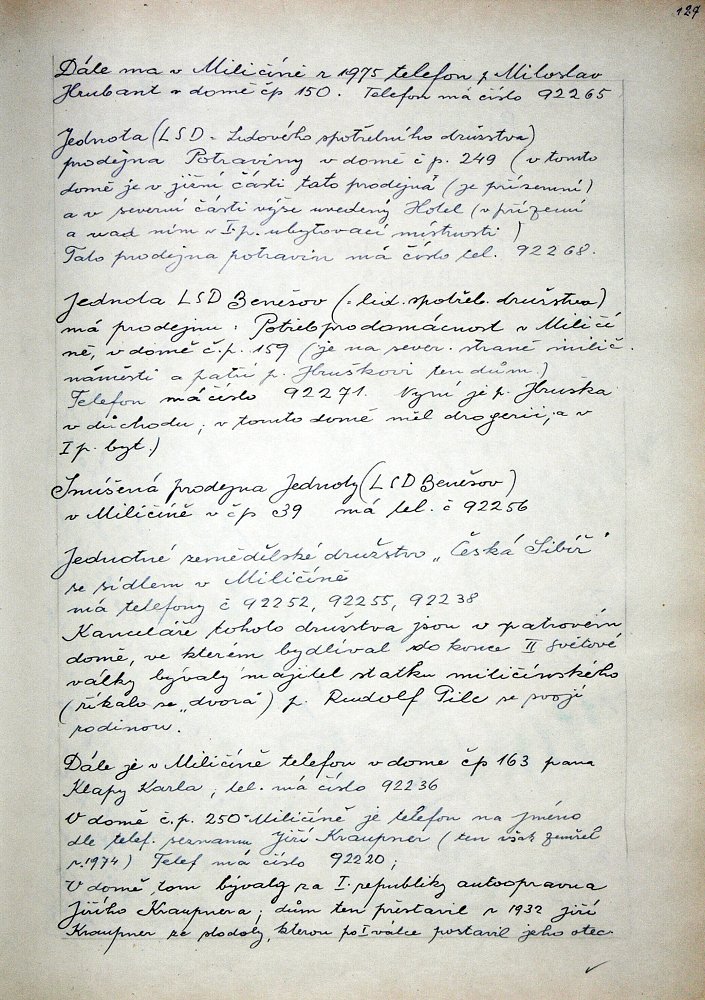 127
Dále ma v Miličíně r 1975 telefon p Miloslav
Hrubant v domě čp 150. Telefon má číslo 92265
Jednota (LSD - Lidového spotřebního družstva)
prodejna Potraviny v domě č p. 249 (v tomto
domě je v jižní části tato prodejna (je přízemní)
a v severní části výše uvedený Hotel (v přízemí
a nad ním v I. p. ubytovací místnosti)
Tato prodejna potravin má číslo tel. 92268.
Jednota LSD Benešov (= lid. spotřeb. družstva)
má prodejnu: Potřeb pro domácnost v Miličí
ně, v domě č.p. 159 (je na sever. straně milič.
náměstí a patří p. Hruškovi ten dům.)
Telefon má číslo 92271. Nyní je p. Hruška
v důchodu; v tomto domě měl drogerii, a v
I p. byt.)
Smíšená prodejna Jednoty (LSD Benešov)
v Miličíně v čp 39 má tel. č 92256
Jednotné zemědělské družstvo „Česká Sibiř"
se sídlem v Miličíně
má telefony č 92252, 92255, 92238
Kanceláře tohoto družstva jsou v patrovém
domě, ve kterém bydlíval do konce II světové
války bývalý majitel statku miličínského
(říkalo se „dvora") p. Rudolf Pilc se svojí
rodinou.
Dále je v Miličíně telefon v dome čp 163 pana
Klapy Karla; tel. má číslo 92236
V domě č.p. 250 - Miličíně je telefon na jméno
dle telef. seznamu Jiří Kraupner (ten však zemřel
r. 1974) Telef má číslo 92220;
V domě tom bývala za I. republiky autoopravna
Jiřího Kraupnera; dům ten přestavil r 1932 Jiří
Kraupner ze stodoly, kterou po I válce postavil jeho otec